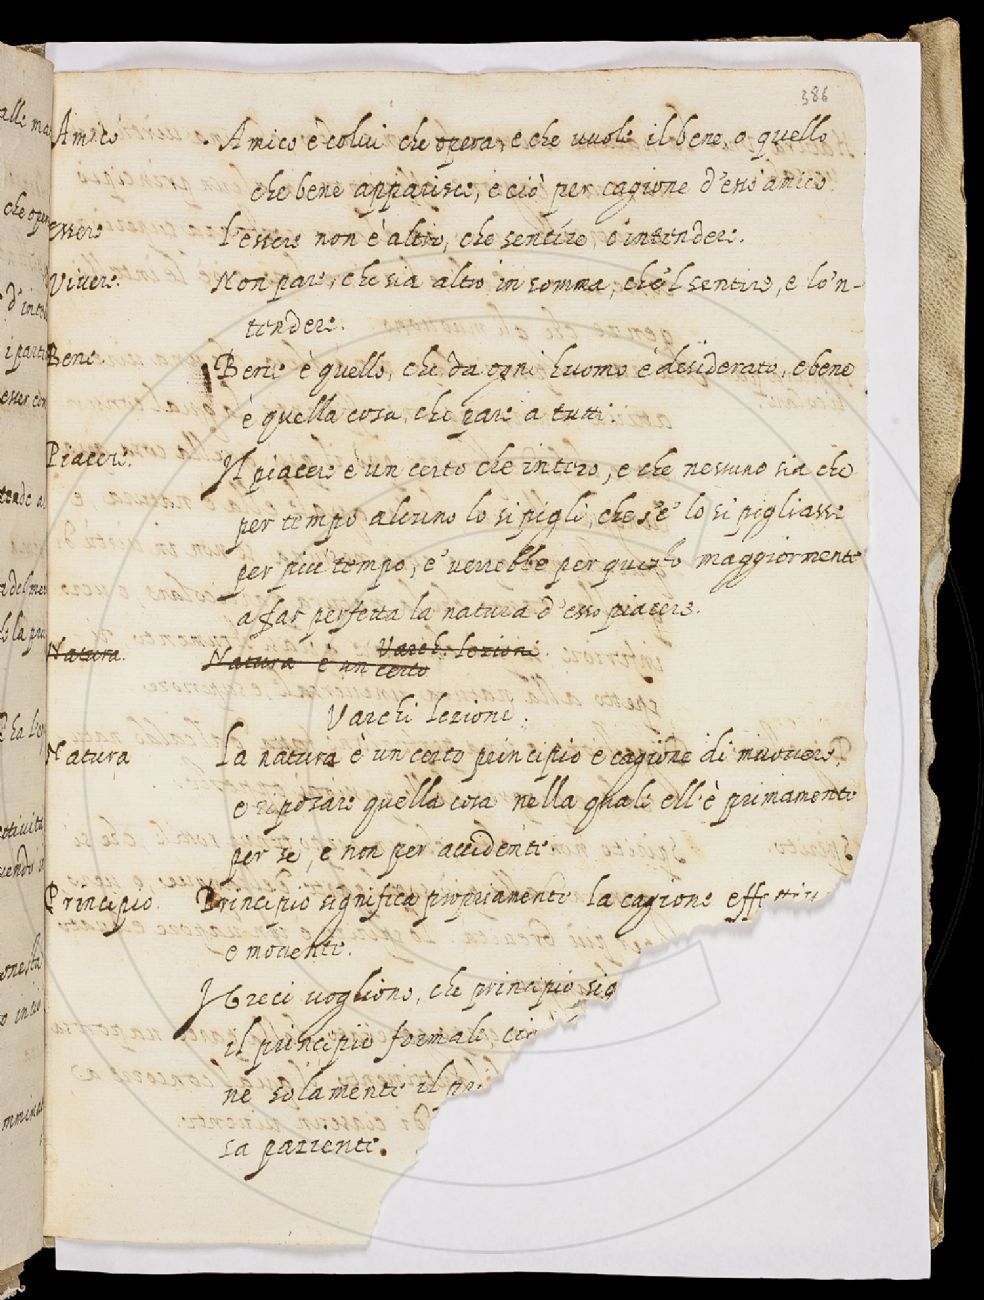 386
Amico Amico è colui che opera, e che vuole il bene, o quello
che bene apparisce, e ciò per cagione d'esso amico.
essere L'essere non è altro, che sentire, o intendere.
Vivere. Non pare, che sia altro in somma, che'l sentire, e lo'n-
tendere.
Bene. Bene è quello, che da ogni huomo è desiderato, e bene
è quella cosa, che pare a tutti.
Piacere. Il piacere è un certo che intero, e che nessuno sia che
per tempo alcuno lo si pigli, che s'e' lo si pigliasse
per più tempo, e' verrebbe per questo maggiormente
a far perfetta la natura d'esso piacere.
Natura. Natura è un certo Varchi lezioni.
Varchi lezioni.
Natura La natura è un certo principio e cagione di muovere,
e riposare quella cosa nella quale ell'è primamente
per se, e non per accidente
Principio. Principio significa propriamente la cagione effettiv
e movente.
I Greci vogliono, che principio sig
il principio formale, cio
ne solamente il
sa paziente.